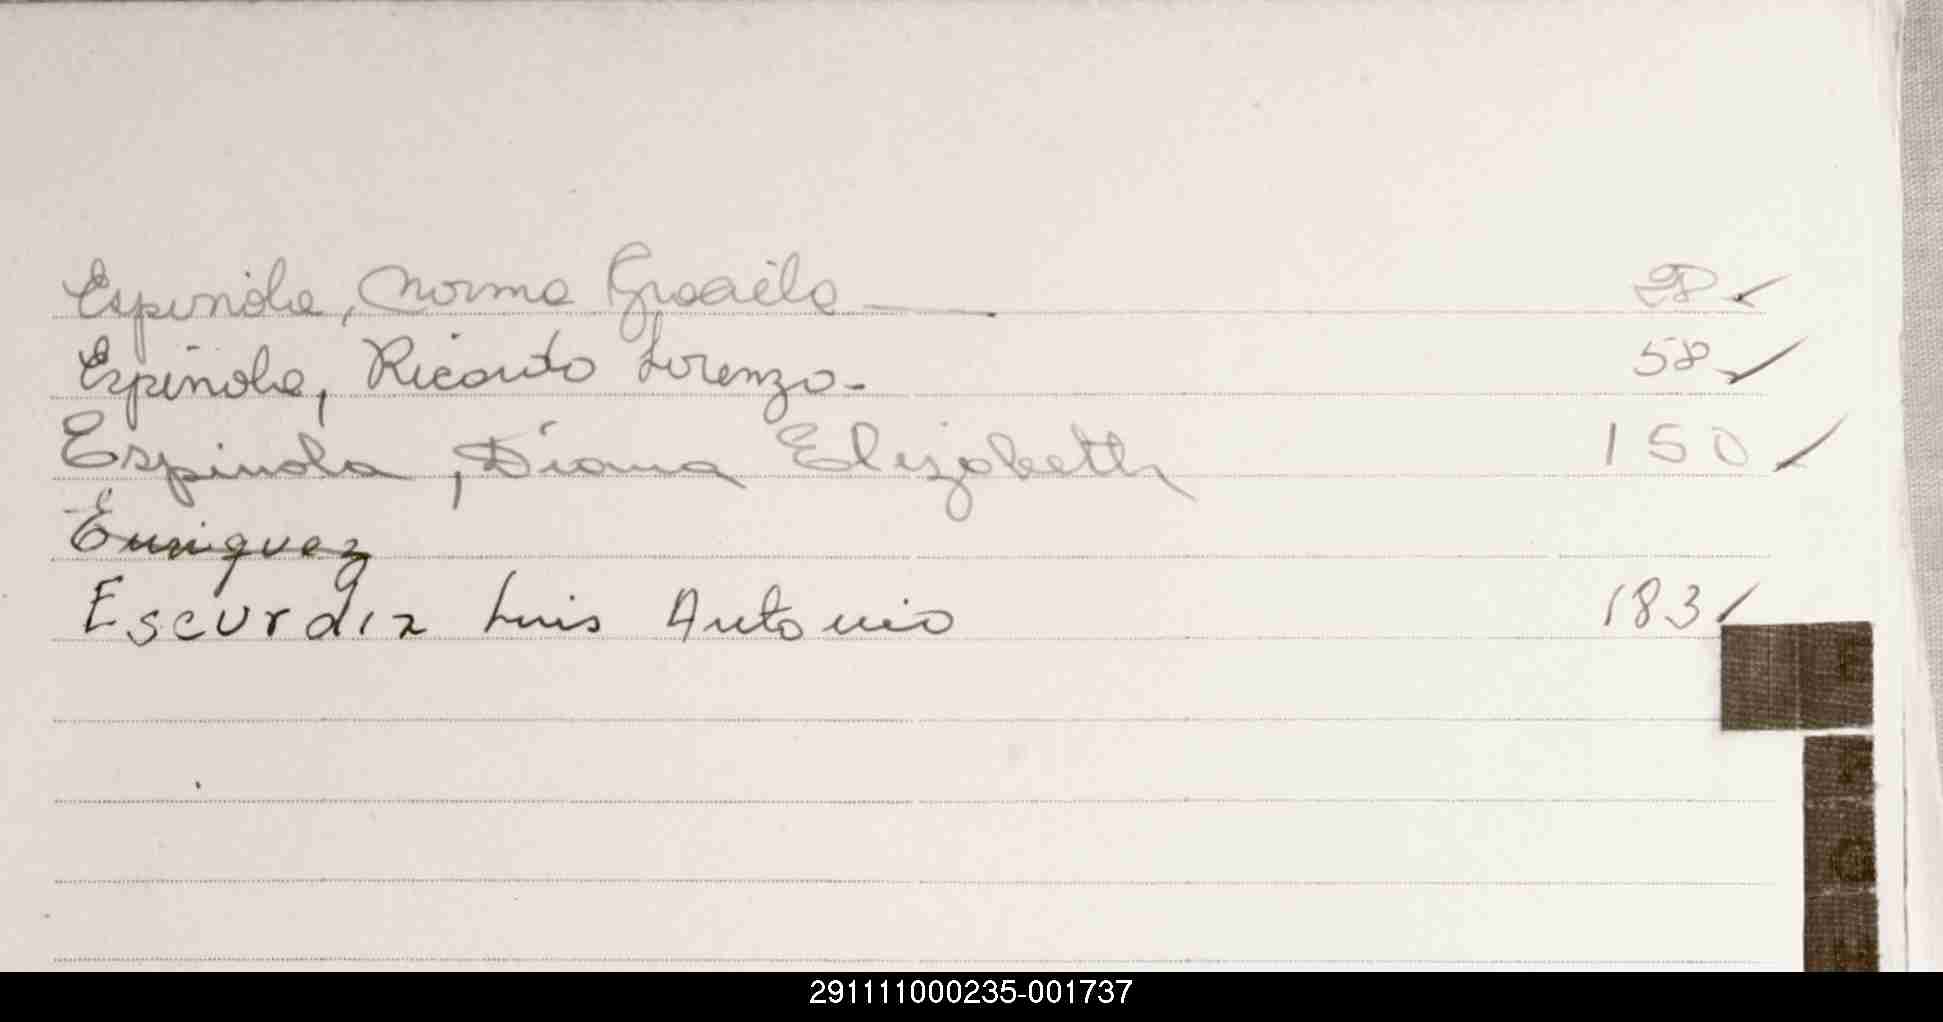 Espinola, Norma Graciela — 28 ✓
Espinola, Ricardo Lorenzo - 58 ✓
Espinola, Diana Elizabeth 150 ✓
Enriquez
Escurdia Luis Antonio 183 ✓
291111000235-001737